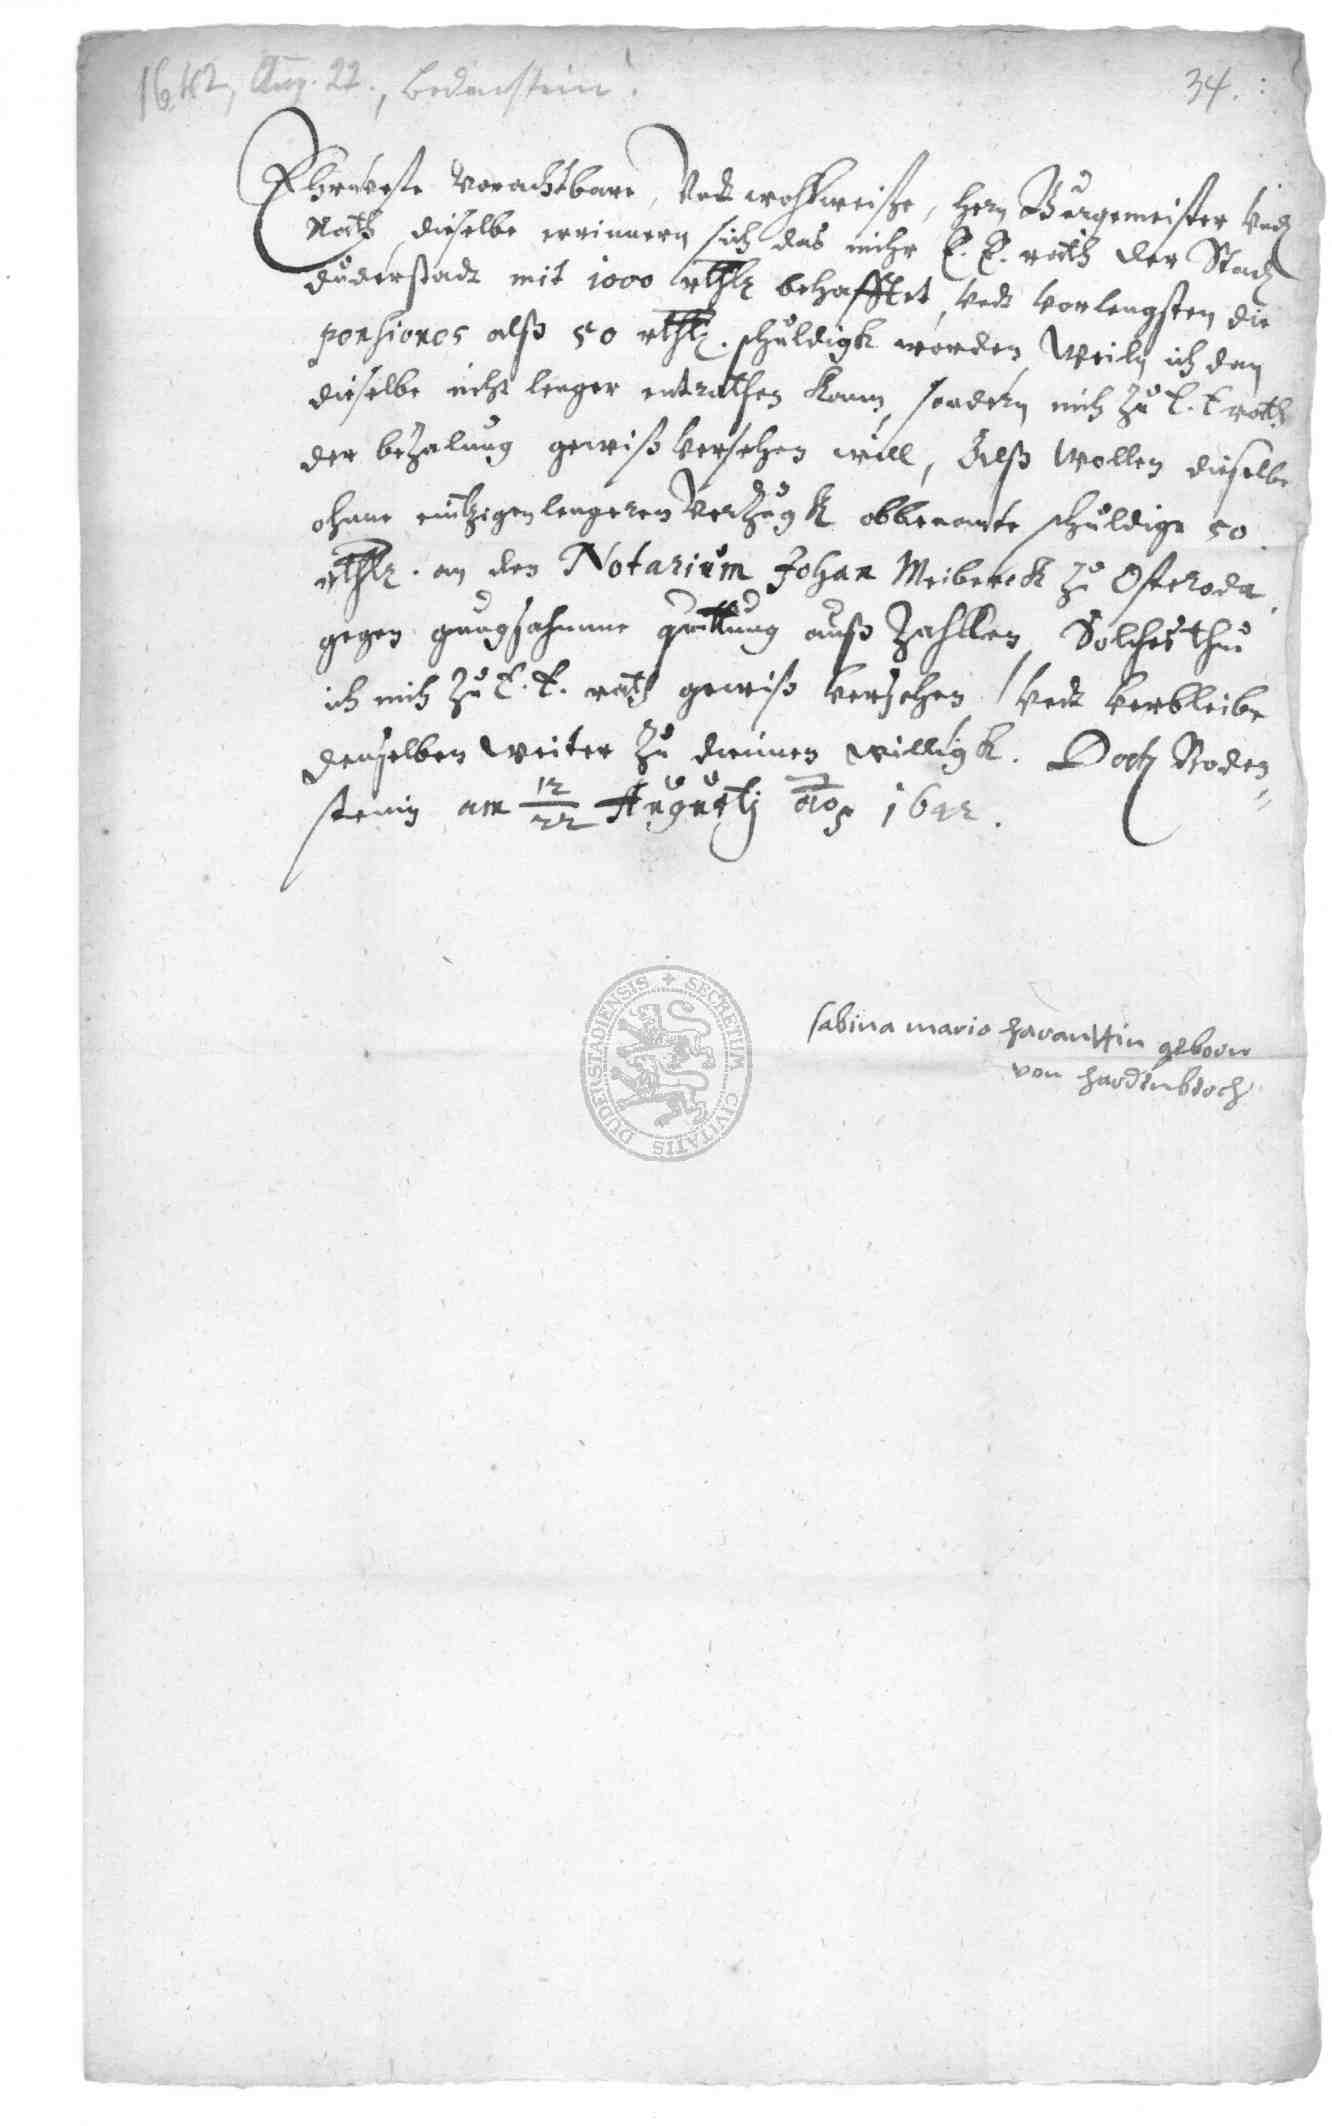 1642, Aug. 22., Bodenstein.
34.
Ehrnveste Vorachtbare, Vndt wohllweisse, Hern Bürgemeister Vndt
Rath, dieselbe errinnern sich das mihr E. E. rath der Stadt
düderstadt mit 1000 rthlr behafftet, Vndt vorlengsten die
pensiones alss 50 rthlr. schüldigk worden, Weiln ich dan
dieselbe nicht lenger entrathen kann, sondern mich zü E. E rath
der bezalüng gewiss versehen will, Alss wollen dieselbe
ohne eintzigen lengeren Verzügk obbenante schüldige 50
rthlr. an den Notariüm Johan Meibereck zü Osteroda,
gegen gnügsahmme quittüng auss zahllen, Solches thü
ich mich zü E. E. rath gewiss versehen, Vndt verbleibe
denselben weiter zü dienen willigk. Datz Boden
stein am 12/22 Aügüsti ao 1642.
Sabina maria geboren
von hardenberch
DUDERSTADIENSIS + SECRETUM CIVITATIS